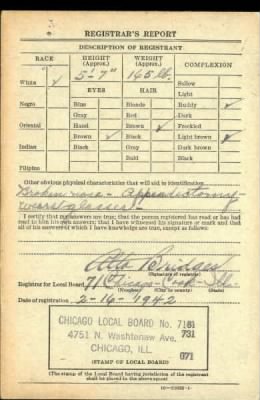 REGISTRAR'S REPORT
DESCRIPTION OF REGISTRANT
RACE HEIGHT (Approx.) WEIGHT (Approx.) COMPLEXION
5'-7" 165 lb.
White ✓ Sallow
EYES HAIR Light
Negro Blue Blonde Ruddy ✓
Gray Red Dark
Oriental Hazel Brown ✓ Freckled
Brown ✓ Black Light brown
Indian Black Gray Dark brown
Bald Black
Filipino
Other obvious physical characteristics that will aid in identification
Broken nose - Appendectomy -
wears glasses
I certify that my answers are true; that the person registered has read or has had
read to him his own answers; that I have witnessed his signature or mark and that
all of his answers of which I have knowledge are true, except as follows:
Bridges
(Signature of registrar)
Registrar for Local Board 71 Chicago - Cook - Ill.
(Number) (City or county) (State)
Date of registration 2-16-1942
CHICAGO LOCAL BOARD No. 71
4751 N. Washtenaw Ave. 731
CHICAGO, ILL. 071
(STAMP OF LOCAL BOARD)
(The stamp of the Local Board having jurisdiction of the registrant
shall be placed in the above space.)